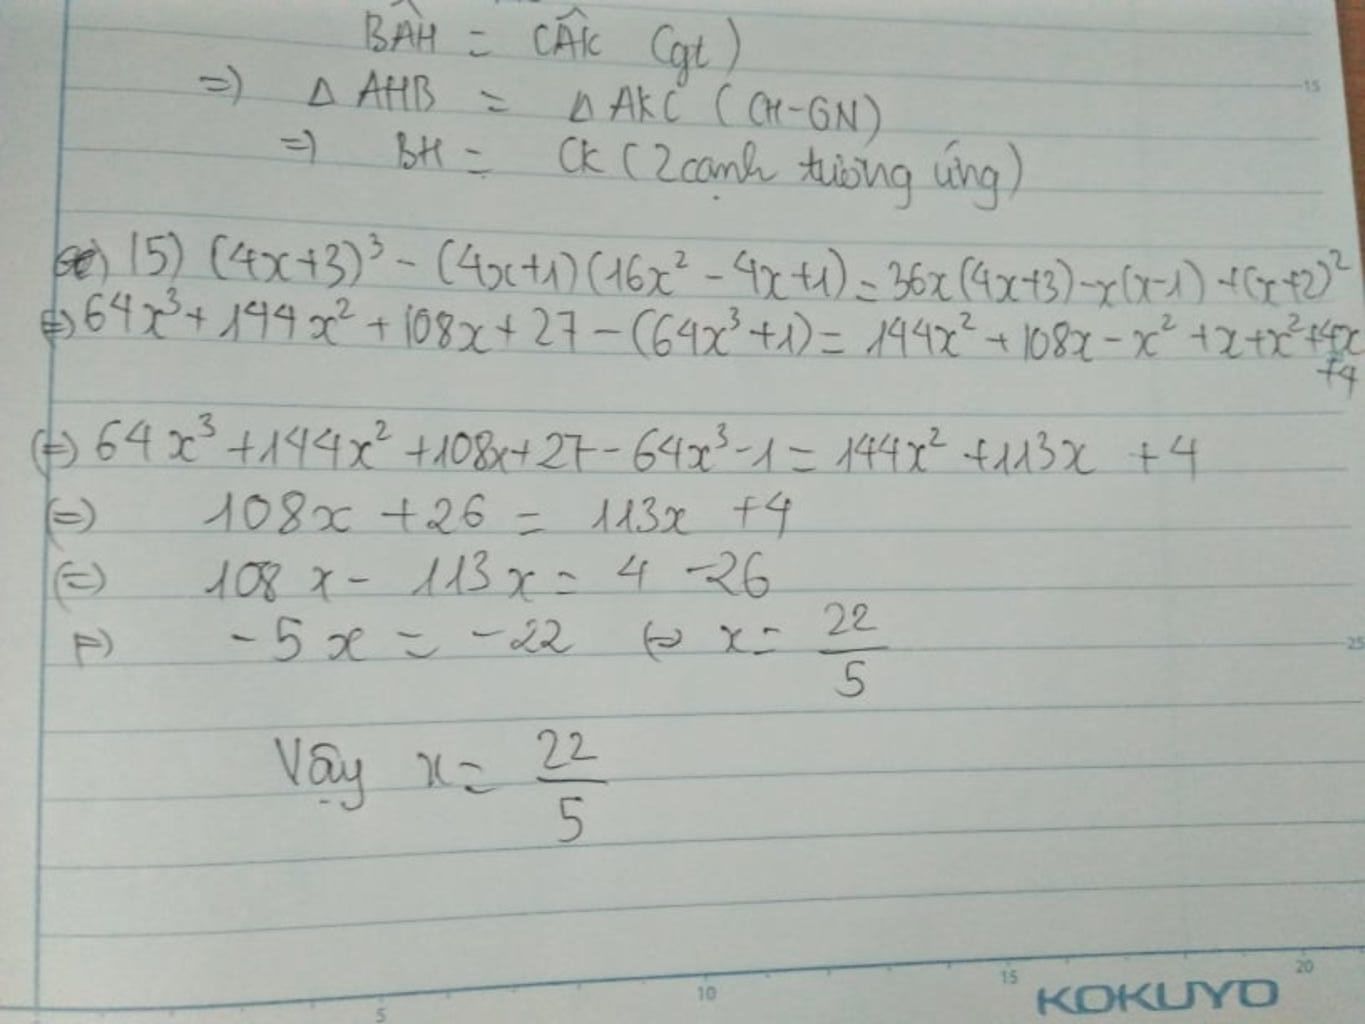 BÂH = CÂK (gt)
=) Δ AHB = Δ AKC (CH-GN)
=) BH = CK (2 cạnh tương ứng)
15) (4x+3)³ - (4x+1)(16x² - 4x+1) = 36x(4x+3) - x(x-1) + (x+2)²
(=) 64x³ + 144x² + 108x + 27 - (64x³+1) = 144x² + 108x - x² + x + x² + 4x
+4
(=) 64x³ + 144x² + 108x + 27 - 64x³ - 1 = 144x² + 113x + 4
(=) 108x + 26 = 113x + 4
(=) 108x - 113x = 4 - 26
(=) -5x = -22 (=) x = 22/5
Vậy x = 22/5
15
25
5 10 15 20
KOKUYO